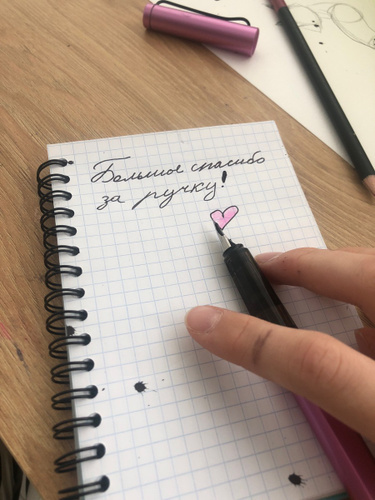 Большое спасибо
за ручку!